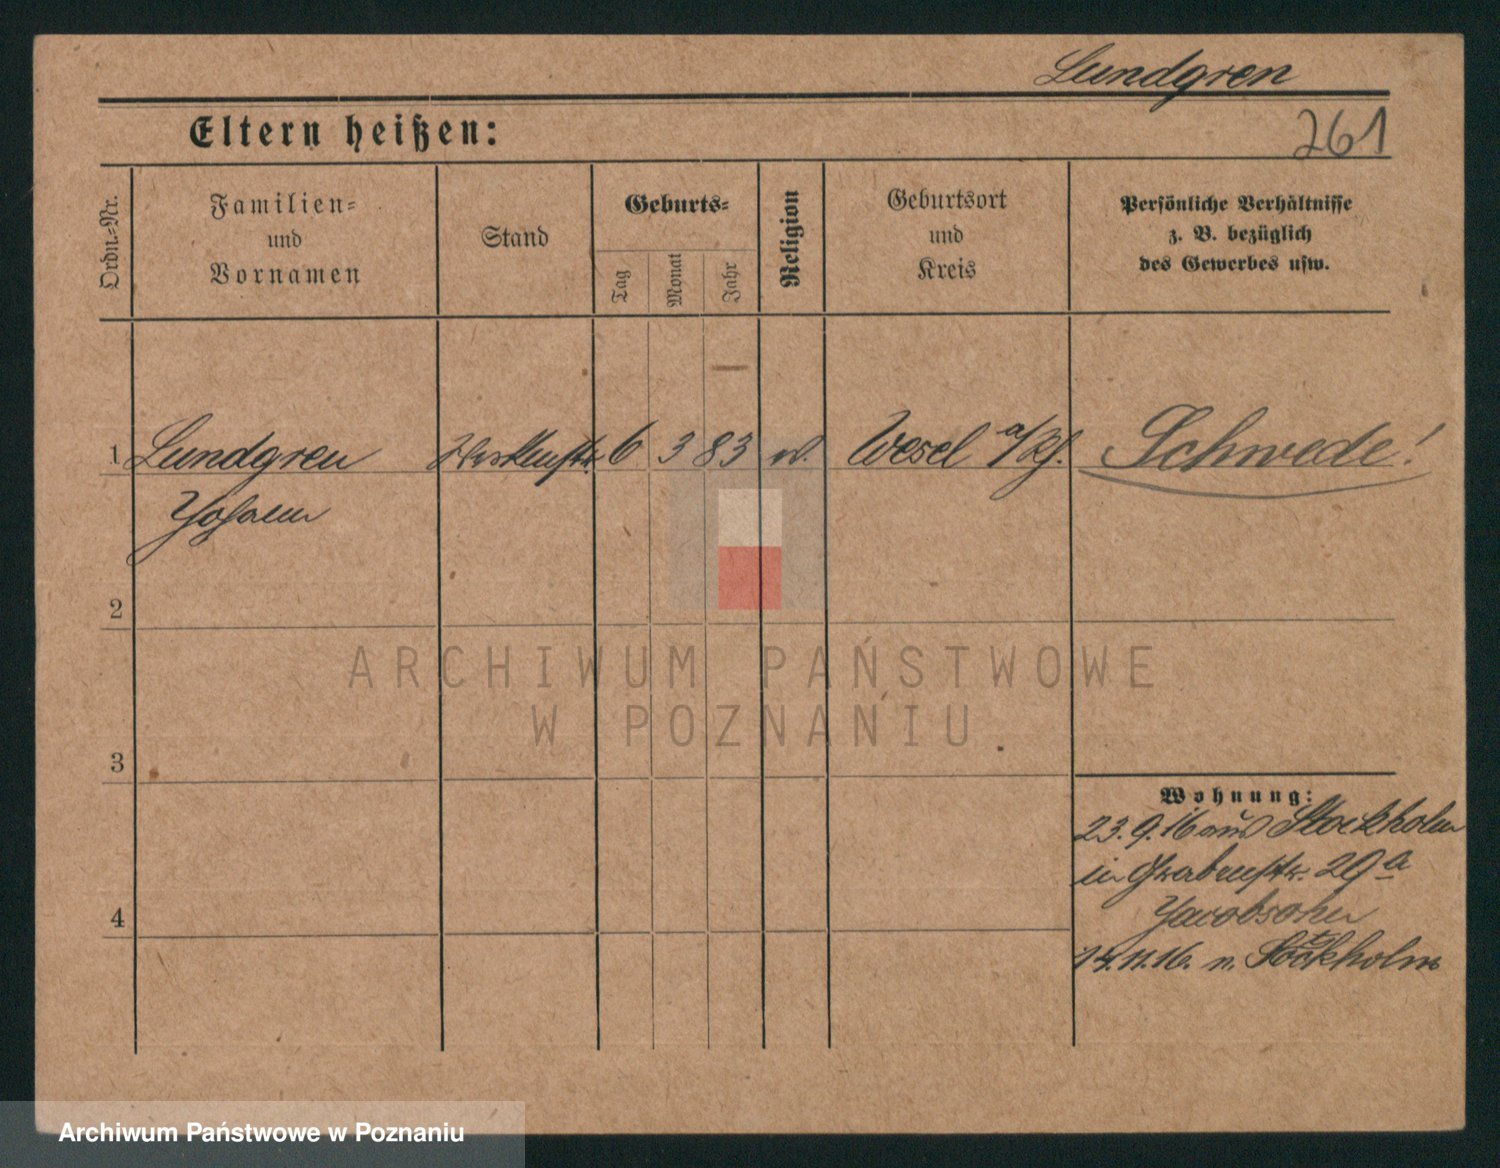 Lundgren
Eltern heißen:
261
Ordn.=Nr.
Familien=
und
Vornamen
Stand
Geburts=
Tag
Monat
Jahr
Religion
Geburtsort
und
Kreis
Persönliche Verhältnisse
z. B. bezüglich
des Gewerbes usw.
1 Lundgren 6 3 83 Wesel a/Rh. Schwede!
Johann
2
3
4
Wohnung:
23.9.16 aus Stockholm
in Grabenstr. 29a
Jacobsohn
14.11.16. n. Stockholm
ARCHIWUM PAŃSTWOWE
W POZNANIU
Archiwum Państwowe w Poznaniu